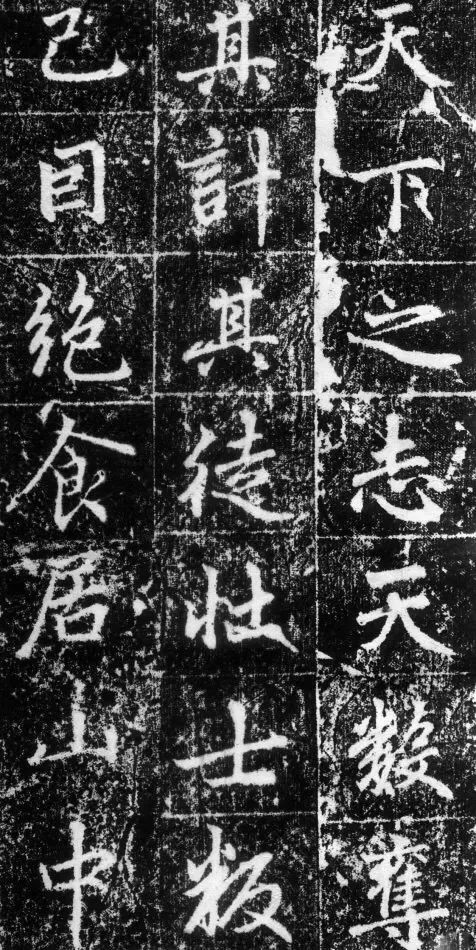 天下之志天數奪
其計其徒壯士叛
己因絕食居山中